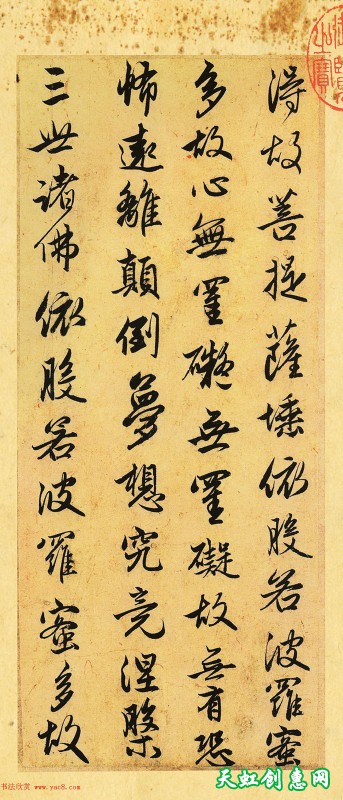 得故菩提薩埵依般若波羅蜜
多故心無罣礙無罣礙故無有恐
怖遠離顛倒夢想究竟涅槃
三世諸佛依般若波羅蜜多故
书法欣赏 www.yac8.com
天虹创惠网